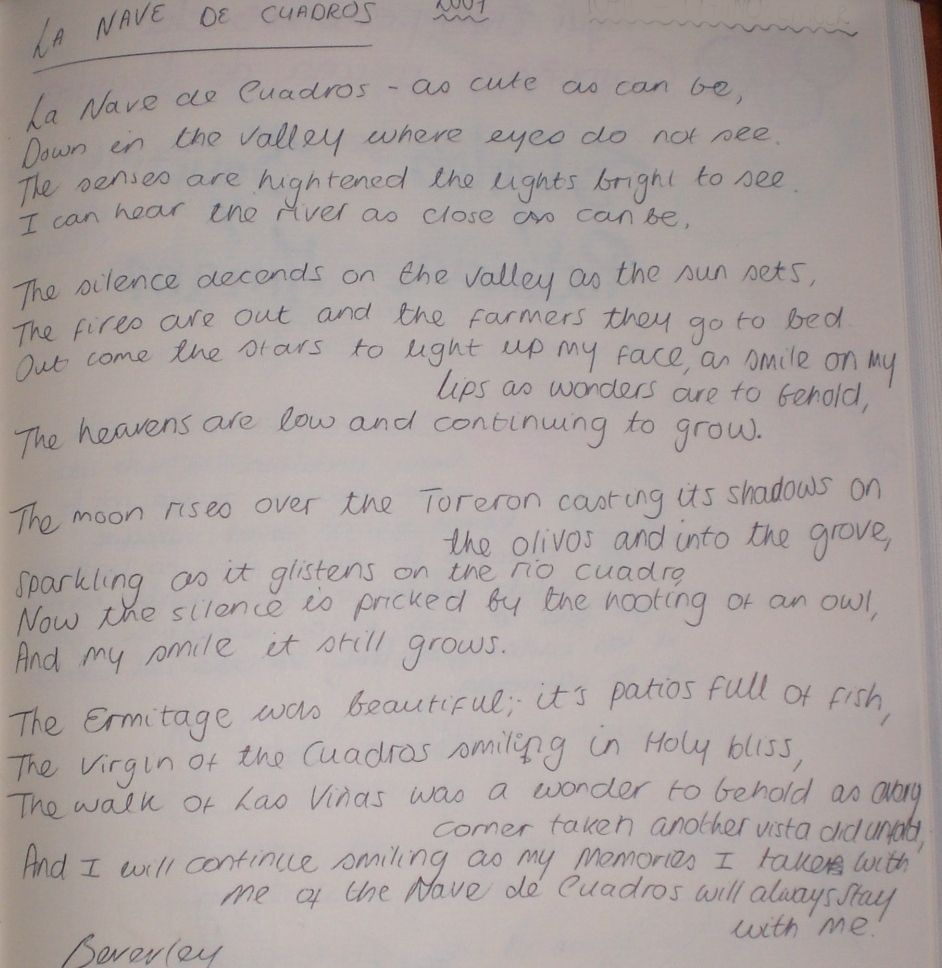 LA NAVE DE CUADROS 2007
La Nave de Cuadros - as cute as can be,
Down in the valley where eyes do not see.
The senses are hightened the lights bright to see.
I can hear the river as close as can be,
The silence decends on the valley as the sun sets,
The fires are out and the farmers they go to bed
Out come the stars to light up my face, as smile on my
lips as wonders are to behold,
The heavens are low and continuing to grow.
The moon rises over the Toreron casting its shadows on
the olivos and into the grove,
Sparkling as it glistens on the rio cuadro,
Now the silence is pricked by the hooting of an owl,
And my smile it still grows.
The Ermitage was beautiful; it's patios full of fish,
The Virgin of the Cuadros smiling in Holy bliss,
The walk of Las Viñas was a wonder to behold as
corner taken another vista did unfold,
And I will continue smiling as my memories I take with
me of the Nave de Cuadros will always stay
with me.
Beverley